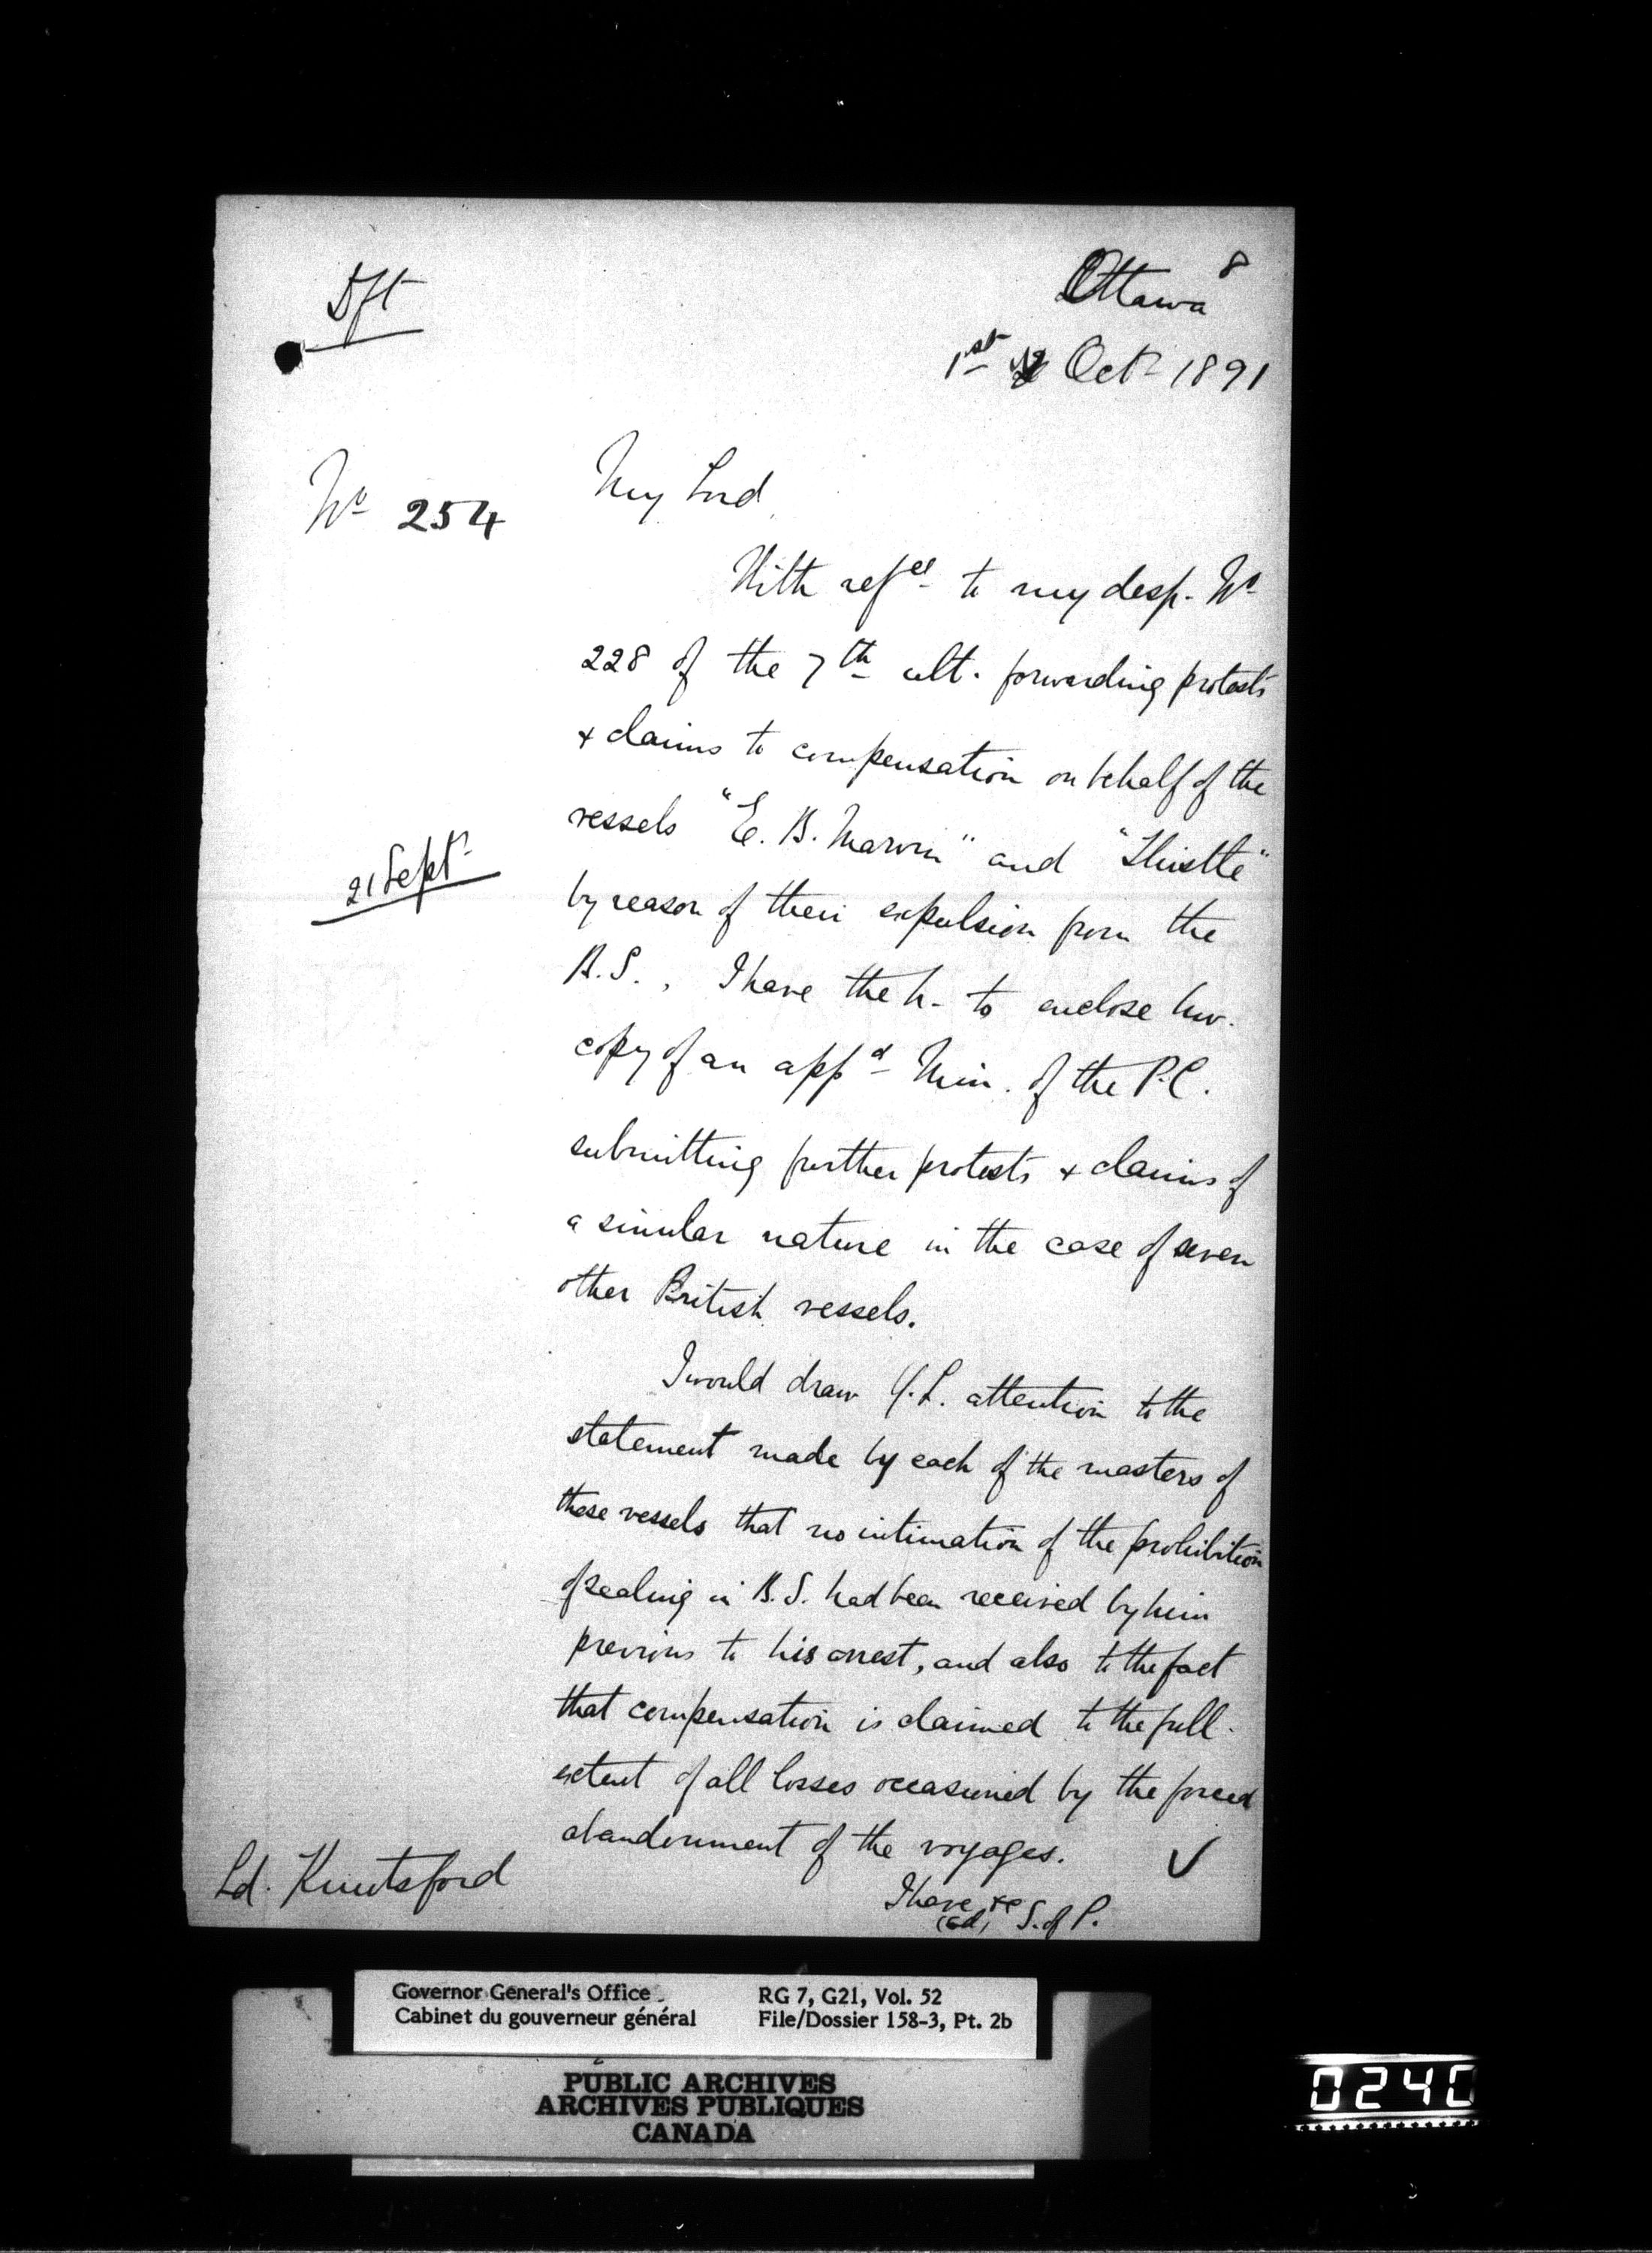 Dft
Ottawa 8
1st Oct 1891
No 254
My Lord
With refce to my desp. No
228 of the 7th ult. forwarding protests
& claims to compensation on behalf of the
vessels "E. B. Marvin" and "Thistle"
21 Sept
by reason of their expulsion from the
B.S., I have the h. to enclose hw.
copy of an appd Min. of the P.C.
submitting further protests & claims of
a similar nature in the case of seven
other British vessels.
I would draw Y.L. attention to the
statement made by each of the masters of
these vessels that no intimation of the prohibition
of sealing in B.S. had been received by him
previous to his arrest, and also to the fact
that compensation is claimed to the full
extent of all losses occasioned by the forced
abandonment of the voyages.
Ld. Knutsford
I have &c
(Sd) S. of P.
Governor General's Office
Cabinet du gouverneur général
RG 7, G21, Vol. 52
File/Dossier 158-3, Pt. 2b
PUBLIC ARCHIVES
ARCHIVES PUBLIQUES
CANADA
0240